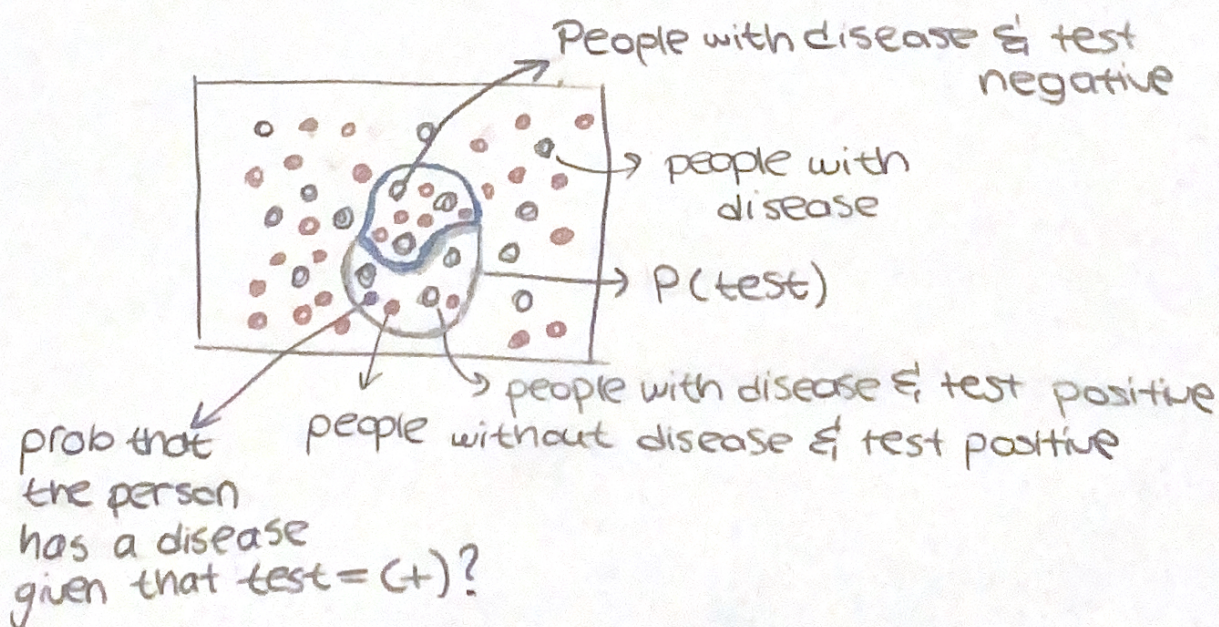 People with disease & test
negative
people with
disease
P(test)
people with disease & test positive
people without disease & test positive
prob that
the person
has a disease
given that test = (+)?